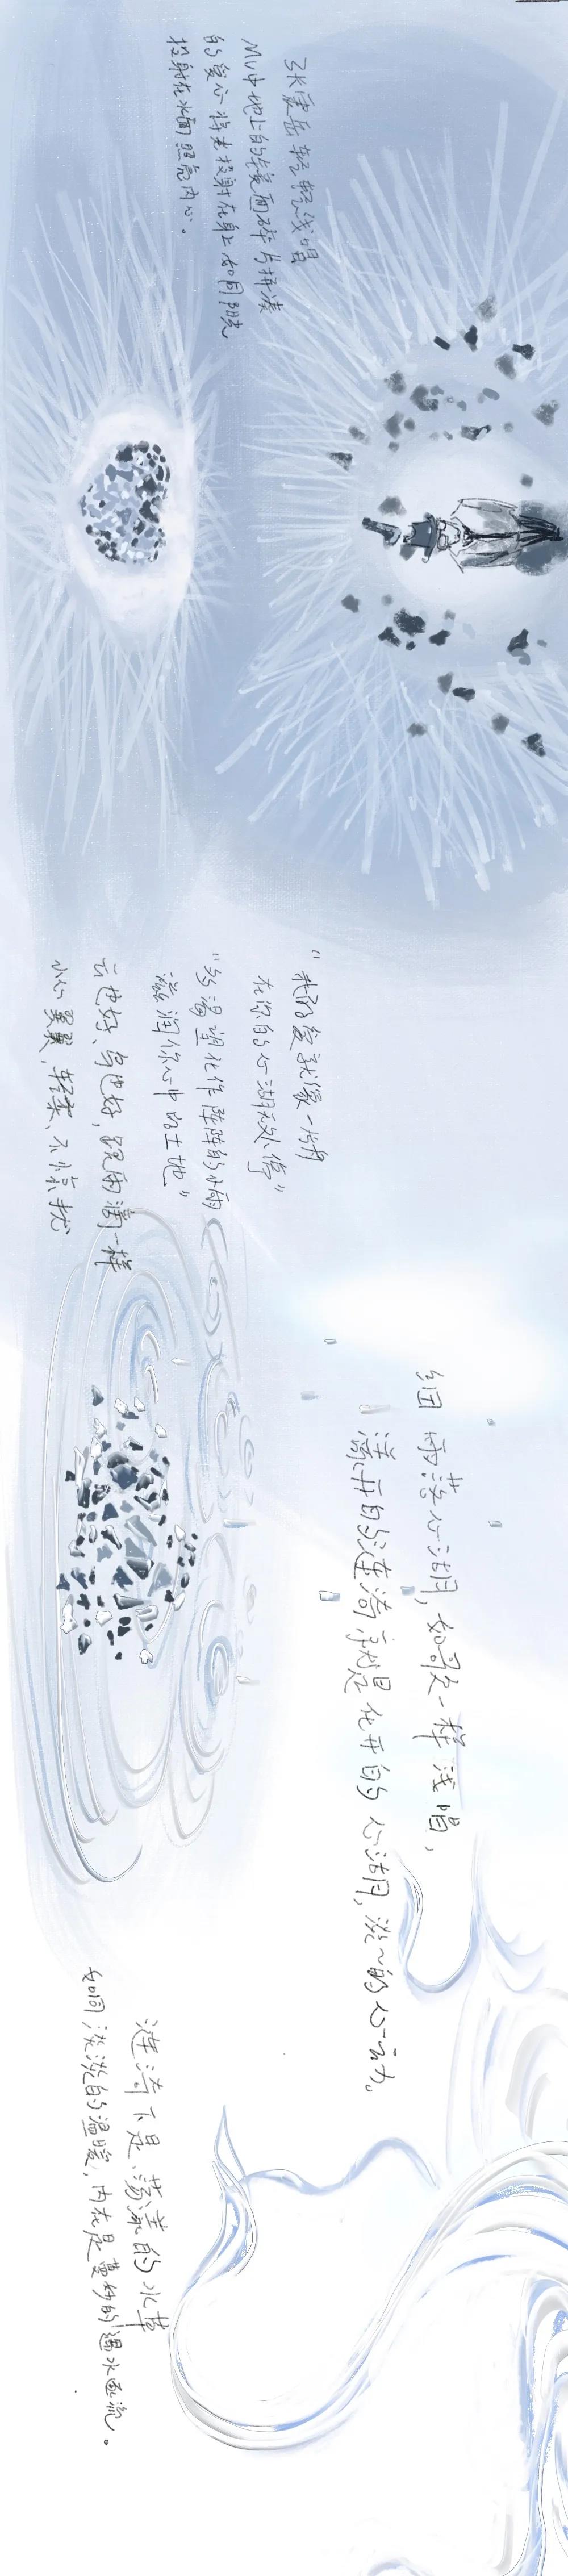 张震岳轻轻浅唱
MV中地上的镜面碎片拼凑
的爱心将光投射在身上如同阳光
投射在水面照亮内心。
“我的爱就像一片片
在你的心湖一处停”
“多渴望化作阵阵的小雨
滋润你心中的土地”
云也好、鸟也好,跟雨滴一样
小心翼翼,轻柔、不惊扰
细雨落心湖,如歌一样浅唱,
漾开的涟漪就是化开的心湖,淡~的心动。
涟漪下是、荡漾的水草
如同淡淡的温暖,内在是曼妙的温水逐流。